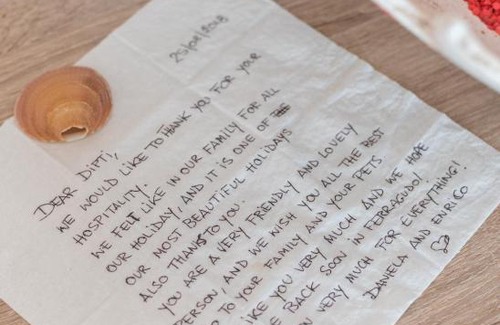 25/08/2018
DEAR DIPTI,
WE WOULD LIKE TO THANK YOU FOR YOUR
HOSPITALITY.
WE FELT LIKE IN OUR FAMILY FOR ALL
OUR HOLIDAY, AND IT IS ONE OF
OUR MOST BEAUTIFUL HOLIDAYS
ALSO THANKS TO YOU.
YOU ARE A VERY FRIENDLY AND LOVELY
PERSON, AND WE WISH YOU ALL THE BEST
TO YOUR FAMILY AND YOUR PETS
LIKE YOU VERY MUCH AND WE HOPE
BE BACK SOON IN FERRAGUDO!
VERY MUCH FOR EVERYTHING!
DANIELA AND ENRICO